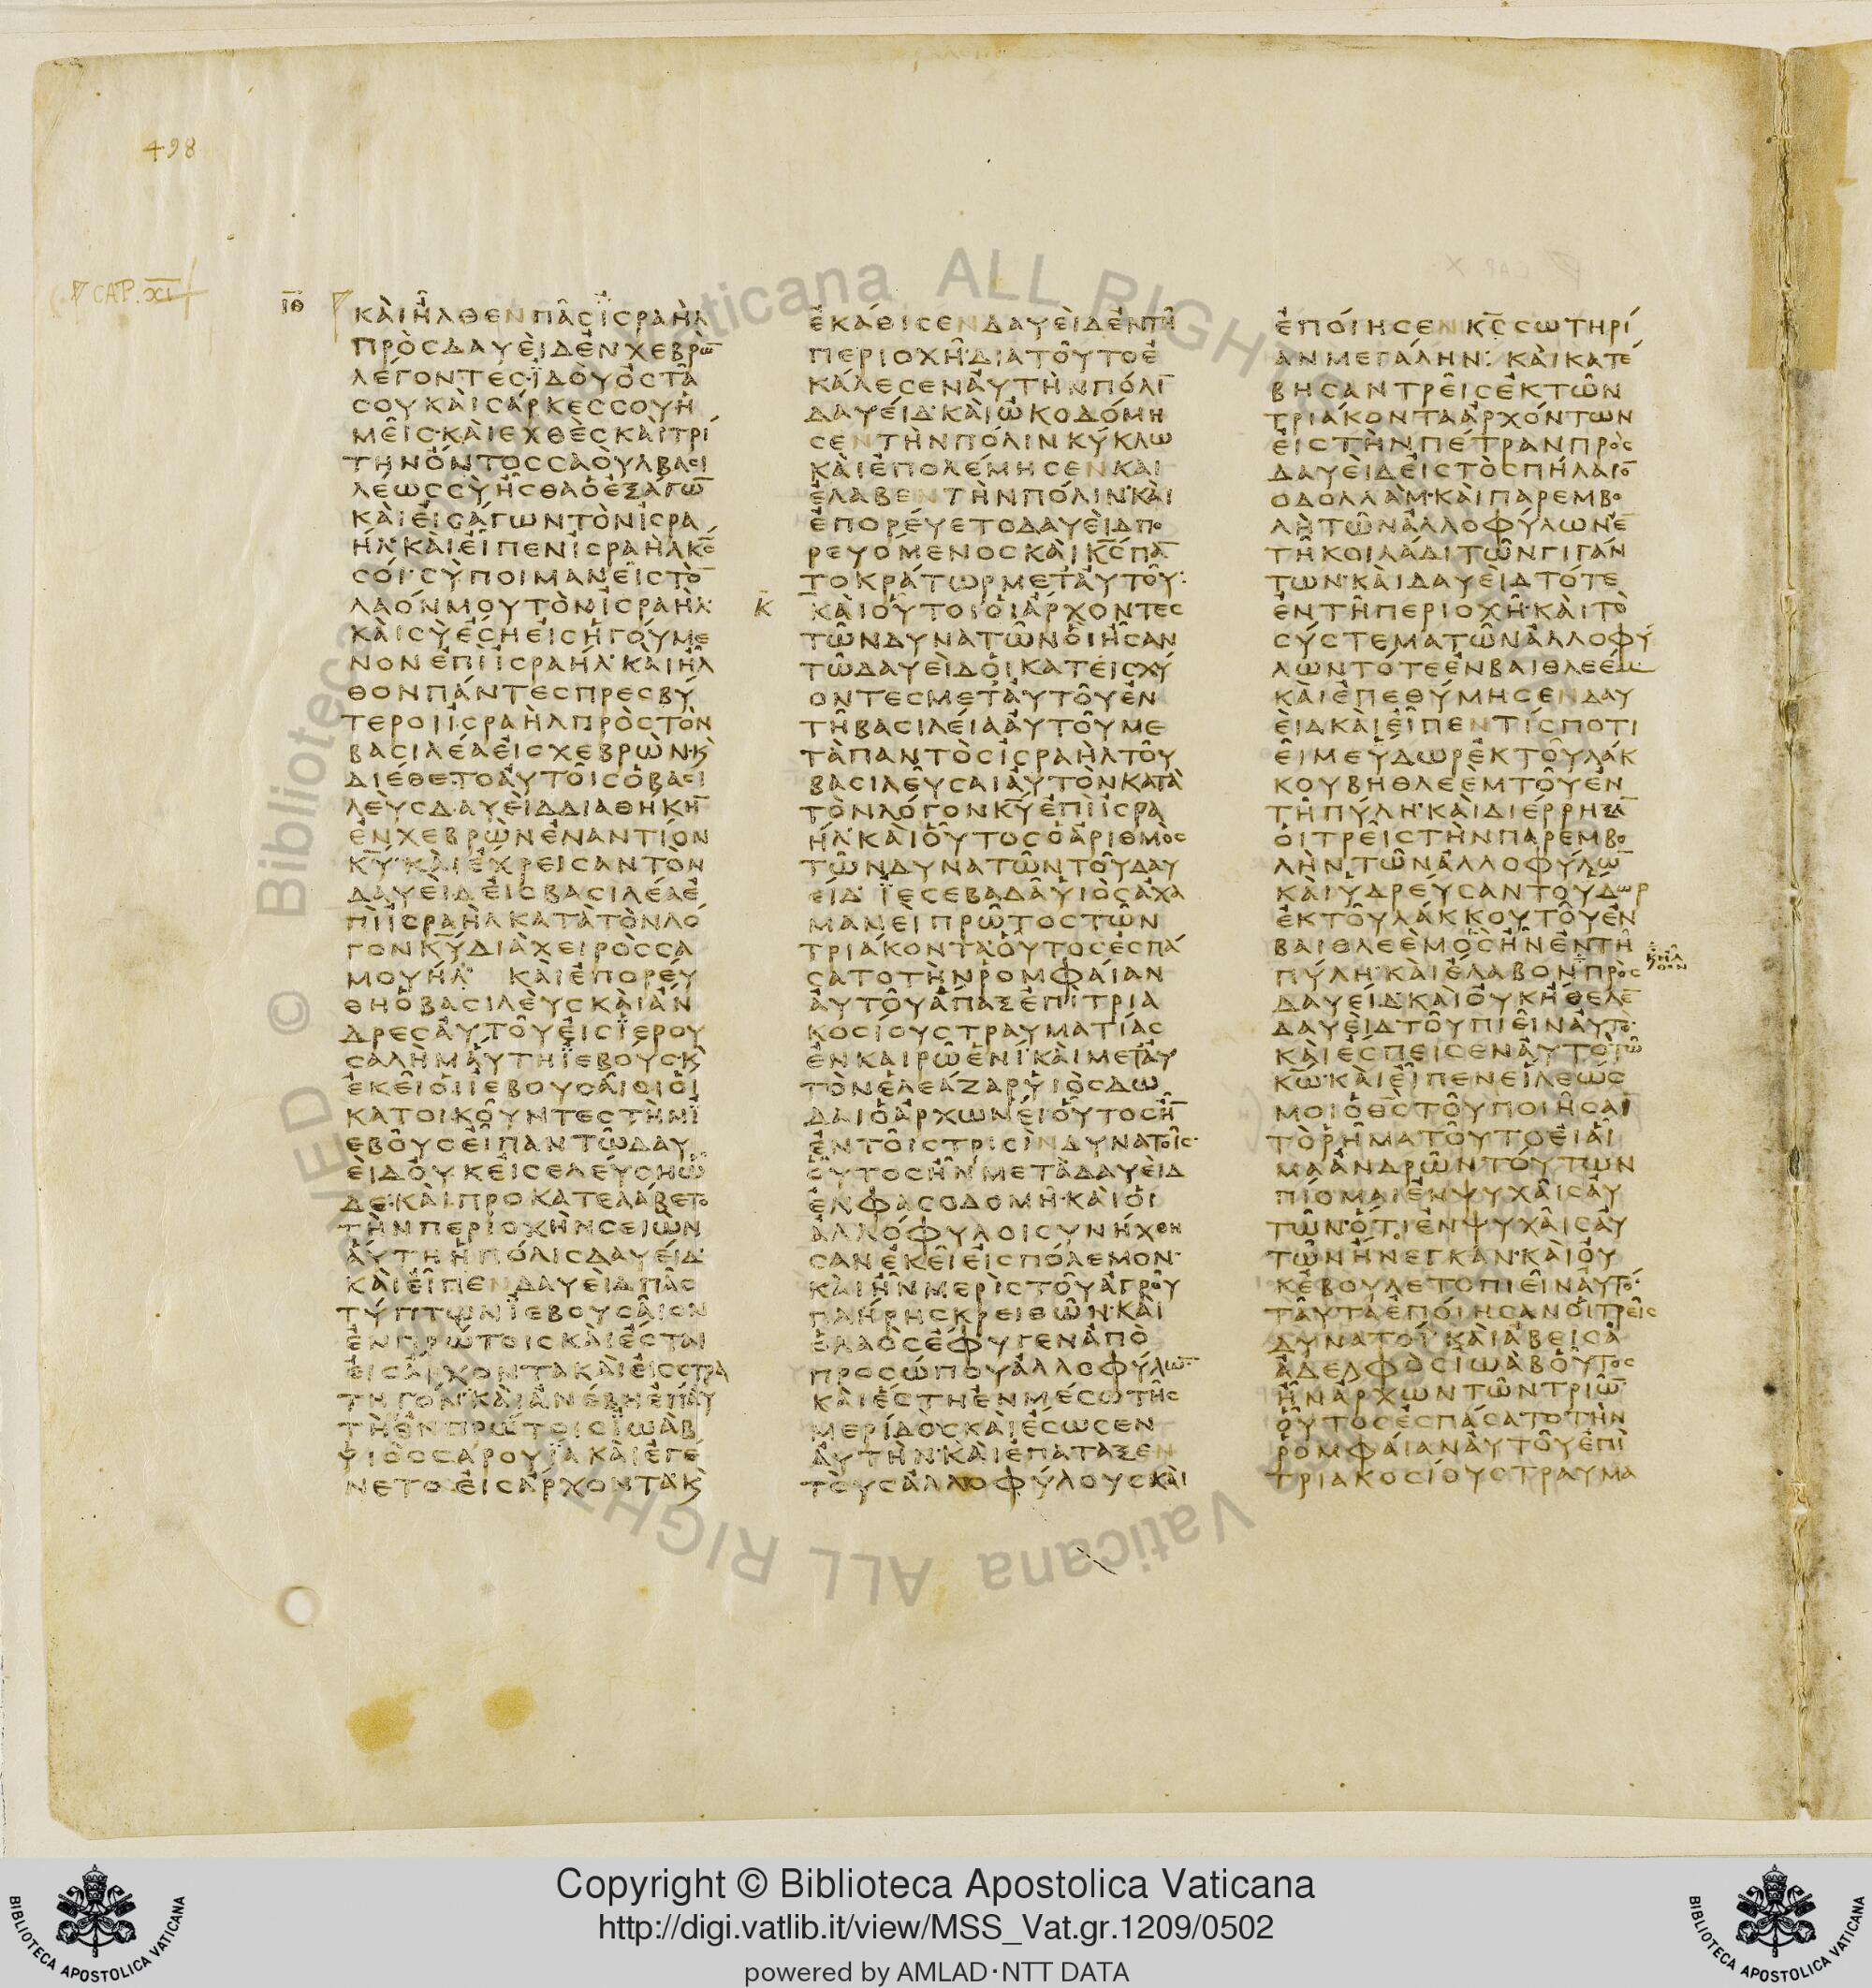 498
CAP. XI
ΙΘ
ΚΑΙ ΗΛΘΕΝ ΠΑϹ ΙϹΡΑΗΛ
ΠΡΟϹ ΔΑΥΕΙΔ ΕΝ ΧΕΒΡΩ̅
ΛΕΓΟΝΤΕϹ· ΙΔΟΥ ΟϹΤΑ
ϹΟΥ ΚΑΙ ϹΑΡΚΕϹ ϹΟΥ Η
ΜΕΙϹ· ΚΑΙ ΕΧΘΕϹ ΚΑΙ ΤΡΙ
ΤΗΝ ΟΝΤΟϹ ϹΑΟΥΛ ΒΑϹΙ
ΛΕΩϹ ϹΥ ΗϹΘΑ Ο ΕΞΑΓΩ̅
ΚΑΙ ΕΙϹΑΓΩΝ ΤΟΝ ΙϹΡΑ
ΗΛ· ΚΑΙ ΕΙΠΕΝ ΙϹΡΑΗΛ Κ̅Ϲ̅
ϹΟΙ· ϹΥ ΠΟΙΜΑΝΕΙϹ ΤΟ̅
ΛΑΟΝ ΜΟΥ ΤΟΝ ΙϹΡΑΗΛ·
ΚΑΙ ϹΥ ΕϹΗ ΕΙϹ ΗΓΟΥΜΕ
ΝΟΝ ΕΠΙ ΙϹΡΑΗΛ· ΚΑΙ ΗΛ
ΘΟΝ ΠΑΝΤΕϹ ΠΡΕϹΒΥ
ΤΕΡΟΙ ΙϹΡΑΗΛ ΠΡΟϹ ΤΟΝ
ΒΑϹΙΛΕΑ ΕΙϹ ΧΕΒΡΩΝ· Κ̀
ΔΙΕΘΕΤΟ ΑΥΤΟΙϹ Ο ΒΑϹΙ
ΛΕΥϹ ΔΑΥΕΙΔ ΔΙΑΘΗΚΗ̅
ΕΝ ΧΕΒΡΩΝ ΕΝΑΝΤΙΟΝ
Κ̅Υ̅· ΚΑΙ ΕΧΡΕΙϹΑΝ ΤΟΝ
ΔΑΥΕΙΔ ΕΙϹ ΒΑϹΙΛΕΑ Ε
ΠΙ ΙϹΡΑΗΛ ΚΑΤΑ ΤΟΝ ΛΟ
ΓΟΝ Κ̅Υ̅ ΔΙΑ ΧΕΙΡΟϹ ϹΑ
ΜΟΥΗΛ· ΚΑΙ ΕΠΟΡΕΥ
ΘΗ Ο ΒΑϹΙΛΕΥϹ ΚΑΙ ΑΝ
ΔΡΕϹ ΑΥΤΟΥ ΕΙϹ ΙΕΡΟΥ
ϹΑΛΗΜ ΑΥΤΗ ΙΕΒΟΥϹ· Κ̀
ΕΚΕΙ ΟΙ ΙΕΒΟΥϹΑΙΟΙ ΟΙ
ΚΑΤΟΙΚΟΥΝΤΕϹ ΤΗΝ Ι
ΕΒΟΥϹ ΕΙΠΑΝ ΤΩ ΔΑΥ
ΕΙΔ ΟΥΚ ΕΙϹΕΛΕΥϹΗ Ω
ΔΕ· ΚΑΙ ΠΡΟΚΑΤΕΛΑΒΕΤΟ
ΤΗΝ ΠΕΡΙΟΧΗΝ ϹΕΙΩΝ
ΑΥΤΗ Η ΠΟΛΙϹ ΔΑΥΕΙΔ·
ΚΑΙ ΕΙΠΕΝ ΔΑΥΕΙΔ ΠΑϹ
ΤΥΠΤΩΝ ΙΕΒΟΥϹΑΙΟΝ
ΕΝ ΠΡΩΤΟΙϹ ΚΑΙ ΕϹΤΑΙ
ΕΙϹ ΑΡΧΟΝΤΑ ΚΑΙ ΕΙϹ ϹΤΡΑ
ΤΗΓΟΝ· ΚΑΙ ΑΝΕΒΗ ΕΠ ΑΥ
ΤΗ ΕΝ ΠΡΩΤΟΙϹ ΙΩΑΒ
ΥΙΟϹ ϹΑΡΟΥΙΑ ΚΑΙ ΕΓΕ
ΝΕΤΟ ΕΙϹ ΑΡΧΟΝΤΑ· Κ̀
ΕΚΑΘΙϹΕΝ ΔΑΥΕΙΔ ΕΝ ΤΗ
ΠΕΡΙΟΧΗ· ΔΙΑ ΤΟΥΤΟ Ε
ΚΑΛΕϹΕΝ ΑΥΤΗΝ ΠΟΛΙ̅
ΔΑΥΕΙΔ· ΚΑΙ ΩΚΟΔΟΜΗ
ϹΕΝ ΤΗΝ ΠΟΛΙΝ ΚΥΚΛΩ
ΚΑΙ ΕΠΟΛΕΜΗϹΕΝ ΚΑΙ
ΕΛΑΒΕΝ ΤΗΝ ΠΟΛΙΝ· ΚΑΙ
ΕΠΟΡΕΥΕΤΟ ΔΑΥΕΙΔ ΠΟ
ΡΕΥΟΜΕΝΟϹ ΚΑΙ Κ̅Ϲ̅ ΠΑ̅
ΤΟΚΡΑΤΩΡ ΜΕΤ ΑΥΤΟΥ:
Κ
ΚΑΙ ΟΥΤΟΙ ΟΙ ΑΡΧΟΝΤΕϹ
ΤΩΝ ΔΥΝΑΤΩΝ ΟΙ ΗϹΑΝ
ΤΩ ΔΑΥΕΙΔ ΟΙ ΚΑΤΕΙϹΧΥ
ΟΝΤΕϹ ΜΕΤ ΑΥΤΟΥ ΕΝ
ΤΗ ΒΑϹΙΛΕΙΑ ΑΥΤΟΥ ΜΕ
ΤΑ ΠΑΝΤΟϹ ΙϹΡΑΗΛ ΤΟΥ
ΒΑϹΙΛΕΥϹΑΙ ΑΥΤΟΝ ΚΑΤΑ
ΤΟΝ ΛΟΓΟΝ Κ̅Υ̅ ΕΠΙ ΙϹΡΑ
ΗΛ· ΚΑΙ ΟΥΤΟϹ Ο ΑΡΙΘΜΟϹ
ΤΩΝ ΔΥΝΑΤΩΝ ΤΟΥ ΔΑΥ
ΕΙΔ· ΙΕϹΕΒΑΔΑ ΥΙΟϹ ΑΧΑ
ΜΑΝΕΙ ΠΡΩΤΟϹ ΤΩΝ
ΤΡΙΑΚΟΝΤΑ· ΟΥΤΟϹ ΕϹΠΑ
ϹΑΤΟ ΤΗΝ ΡΟΜΦΑΙΑΝ
ΑΥΤΟΥ ΑΠΑΞ ΕΠΙ ΤΡΙΑ
ΚΟϹΙΟΥϹ ΤΡΑΥΜΑΤΙΑϹ
ΕΝ ΚΑΙΡΩ ΕΝΙ· ΚΑΙ ΜΕΤ ΑΥ
ΤΟΝ ΕΛΕΑΖΑΡ ΥΙΟϹ ΔΩ
ΔΑΙ Ο ΑΡΧΩΝΕΙ ΟΥΤΟϹ Η̅
ΕΝ ΤΟΙϹ ΤΡΙϹΙΝ ΔΥΝΑΤΟΙϹ·
ΟΥΤΟϹ ΗΝ ΜΕΤΑ ΔΑΥΕΙΔ
ΕΝ ΦΑϹΟΔΟΜΗ· ΚΑΙ ΟΙ
ΑΛΛΟΦΥΛΟΙ ϹΥΝΗΧΘΗ
ϹΑΝ ΕΚΕΙ ΕΙϹ ΠΟΛΕΜΟΝ·
ΚΑΙ ΗΝ ΜΕΡΙϹ ΤΟΥ ΑΓΡΟΥ
ΠΛΗΡΗϹ ΚΡΕΙΘΩΝ· ΚΑΙ
Ο ΛΑΟϹ ΕΦΥΓΕΝ ΑΠΟ
ΠΡΟϹΩΠΟΥ ΑΛΛΟΦΥΛΩ̅·
ΚΑΙ ΕϹΤΗ ΕΝ ΜΕϹΩ ΤΗϹ
ΜΕΡΙΔΟϹ ΚΑΙ ΕϹΩϹΕΝ
ΑΥΤΗΝ· ΚΑΙ ΕΠΑΤΑΞΕΝ
ΤΟΥϹ ΑΛΛΟΦΥΛΟΥϹ ΚΑΙ
ΕΠΟΙΗϹΕΝ Κ̅Ϲ̅ ϹΩΤΗΡΙ
ΑΝ ΜΕΓΑΛΗΝ: ΚΑΙ ΚΑΤΕ
ΒΗϹΑΝ ΤΡΕΙϹ ΕΚ ΤΩΝ
ΤΡΙΑΚΟΝΤΑ ΑΡΧΟΝΤΩΝ
ΕΙϹ ΤΗΝ ΠΕΤΡΑΝ ΠΡΟϹ
ΔΑΥΕΙΔ ΕΙϹ ΤΟ ϹΠΗΛΑΙΟ̅
ΟΔΟΛΛΑΜ· ΚΑΙ ΠΑΡΕΜΒΟ
ΛΗ ΤΩΝ ΑΛΛΟΦΥΛΩΝ Ε̅
ΤΗ ΚΟΙΛΑΔΙ ΤΩΝ ΓΙΓΑΝ
ΤΩΝ· ΚΑΙ ΔΑΥΕΙΔ ΤΟΤΕ
ΕΝ ΤΗ ΠΕΡΙΟΧΗ· ΚΑΙ ΤΟ
ϹΥϹΤΕΜΑ ΤΩΝ ΑΛΛΟΦΥ
ΛΩΝ ΤΟΤΕ ΕΝ ΒΑΙΘΛΕΕΜ·
ΚΑΙ ΕΠΕΘΥΜΗϹΕΝ ΔΑΥ
ΕΙΔ ΚΑΙ ΕΙΠΕΝ ΤΙϹ ΠΟΤΙ
ΕΙ ΜΕ ΥΔΩΡ ΕΚ ΤΟΥ ΛΑΚ
ΚΟΥ ΒΗΘΛΕΕΜ ΤΟΥ ΕΝ
ΤΗ ΠΥΛΗ· ΚΑΙ ΔΙΕΡΡΗΞΑ̅
ΟΙ ΤΡΕΙϹ ΤΗΝ ΠΑΡΕΜΒΟ
ΛΗΝ ΤΩΝ ΑΛΛΟΦΥΛΩ̅
ΚΑΙ ΥΔΡΕΥϹΑΝΤΟ ΥΔΩΡ
ΕΚ ΤΟΥ ΛΑΚΚΟΥ ΤΟΥ ΕΝ
ΒΑΙΘΛΕΕΜ ΟϹ ΗΝ ΕΝ ΤΗ
ΠΥΛΗ· ΚΑΙ ΕΛΑΒΟΝ ΠΡΟϹ
Κ̀ ΗΛΘΟΝ
ΔΑΥΕΙΔ· ΚΑΙ ΟΥΚ ΗΘΕΛΕ̅
ΔΑΥΕΙΔ ΤΟΥ ΠΙΕΙΝ ΑΥΤΟ·
ΚΑΙ ΕϹΠΕΙϹΕΝ ΑΥΤΟ ΤΩ
Κ̅Ω̅· ΚΑΙ ΕΙΠΕΝ ΕΙΛΕΩϹ
ΜΟΙ Ο Θ̅Ϲ̅ ΤΟΥ ΠΟΙΗϹΑΙ
ΤΟ ΡΗΜΑ ΤΟΥΤΟ ΕΙ ΑΙ
ΜΑ ΑΝΔΡΩΝ ΤΟΥΤΩΝ
ΠΙΟΜΑΙ ΕΝ ΨΥΧΑΙϹ ΑΥ
ΤΩΝ· ΟΤΙ ΕΝ ΨΥΧΑΙϹ ΑΥ
ΤΩΝ ΗΝΕΓΚΑΝ· ΚΑΙ ΟΥ
Κ ΕΒΟΥΛΕΤΟ ΠΙΕΙΝ ΑΥΤΟ·
ΤΑΥΤΑ ΕΠΟΙΗϹΑΝ ΟΙ ΤΡΕΙϹ
ΔΥΝΑΤΟΙ· ΚΑΙ ΑΒΕΙϹΑ
ΑΔΕΛΦΟϹ ΙΩΑΒ ΟΥΤΟϹ
ΗΝ ΑΡΧΩΝ ΤΩΝ ΤΡΙΩ̅
ΟΥΤΟϹ ΕϹΠΑϹΑΤΟ ΤΗΝ
ΡΟΜΦΑΙΑΝ ΑΥΤΟΥ ΕΠΙ
ΤΡΙΑΚΟϹΙΟΥϹ ΤΡΑΥΜΑ
© Biblioteca Vaticana ALL RIGHTS RESERVED
Copyright © Biblioteca Apostolica Vaticana
http://digi.vatlib.it/view/MSS_Vat.gr.1209/0502
powered by AMLAD·NTT DATA
BIBLIOTECA APOSTOLICA VATICANA
BIBLIOTECA APOSTOLICA VATICANA